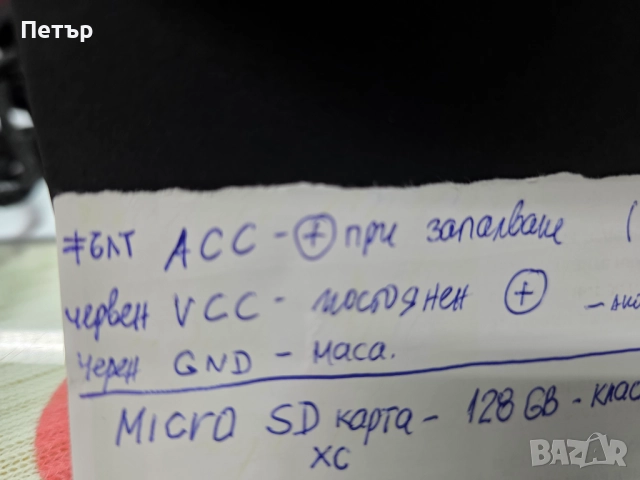 Петър
жълт ACC - + при запалване (
червен VCC - постоянен + -
черен GND - маса.
MICRO SD карта - 128 GB - клас
XC
BAZAR